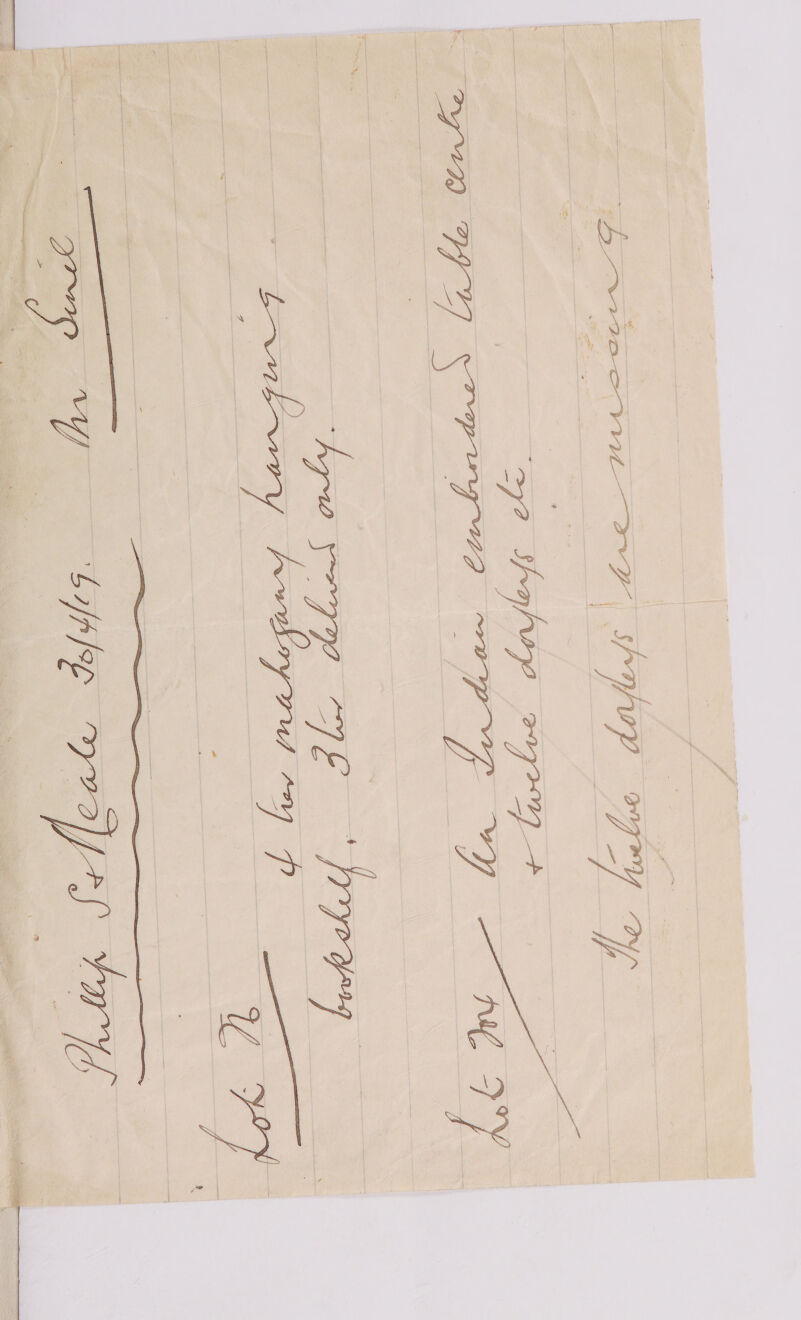 Phillip S & Neale 30/4/19. Mr
Lot 4 tier mahogany hanging
bookshelf. 3 tier delivered only.
Lot An Indian embroidered table centre
+ twelve doyleys etc.
The twelve doyleys are missing